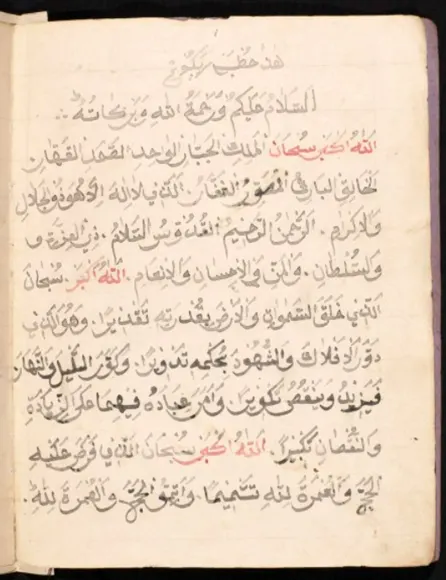 هذا خطبة
السَّلَامُ عَلَيْكُمْ وَرَحْمَةُ اللهِ وَبَرَكَاتُهُ
اَللهُ اَكْبَرْ سُبْحَانَ الْمَلِكِ الْجَبَّارِ الْوَاحِدِ الصَّمَدِ الْقَهَّارِ
الْخَالِقِ الْبَارِئِ الْمُصَوِّرِ الْغَفَّارِ الَّذِي لَا اِلهَ اِلَّا هُوَ ذُو الْجَلَالِ
وَالْاِكْرَامِ. الرَّحْمنِ الرَّحِيْمِ الْقُدُّوْسِ السَّلَامِ. ذِي الْعِزَّةِ
وَالسُّلْطَانِ. وَالْمَنِّ وَالْاِحْسَانِ وَالْاِنْعَامِ. اَللهُ اَكْبَرْ. سُبْحَانَ
الَّذِي خَلَقَ السَّموَاتِ وَالْاَرْضَ بِقُدْرَتِهِ تَقْدِيْرًا. وَهُوَ الَّذِي
دَوَّرَ الْاَفْلَاكَ وَالشُّهُوْدَ بِحُكْمِهِ تَدْوِيْرًا. وَكَوَّرَ اللَّيْلَ وَالنَّهَارَ
فَيَزِيْدُ وَيَنْقُصُ تَكْوِيْرًا. وَاَمَرَ عِبَادَهُ فِيْهِمَا عَلَى الزِّيَادَةِ
وَالنُّقْصَانِ تَكْبِيْرًا. اَللهُ اَكْبَرْ سُبْحَانَ الَّذِي فَرَضَ عَلَيْهِ
الْحَجَّ وَالْعُمْرَةَ لِلّهِ تَتْمِيْمًا. وَاَتِمُّوا الْحَجَّ وَالْعُمْرَةَ لِلّهِ.